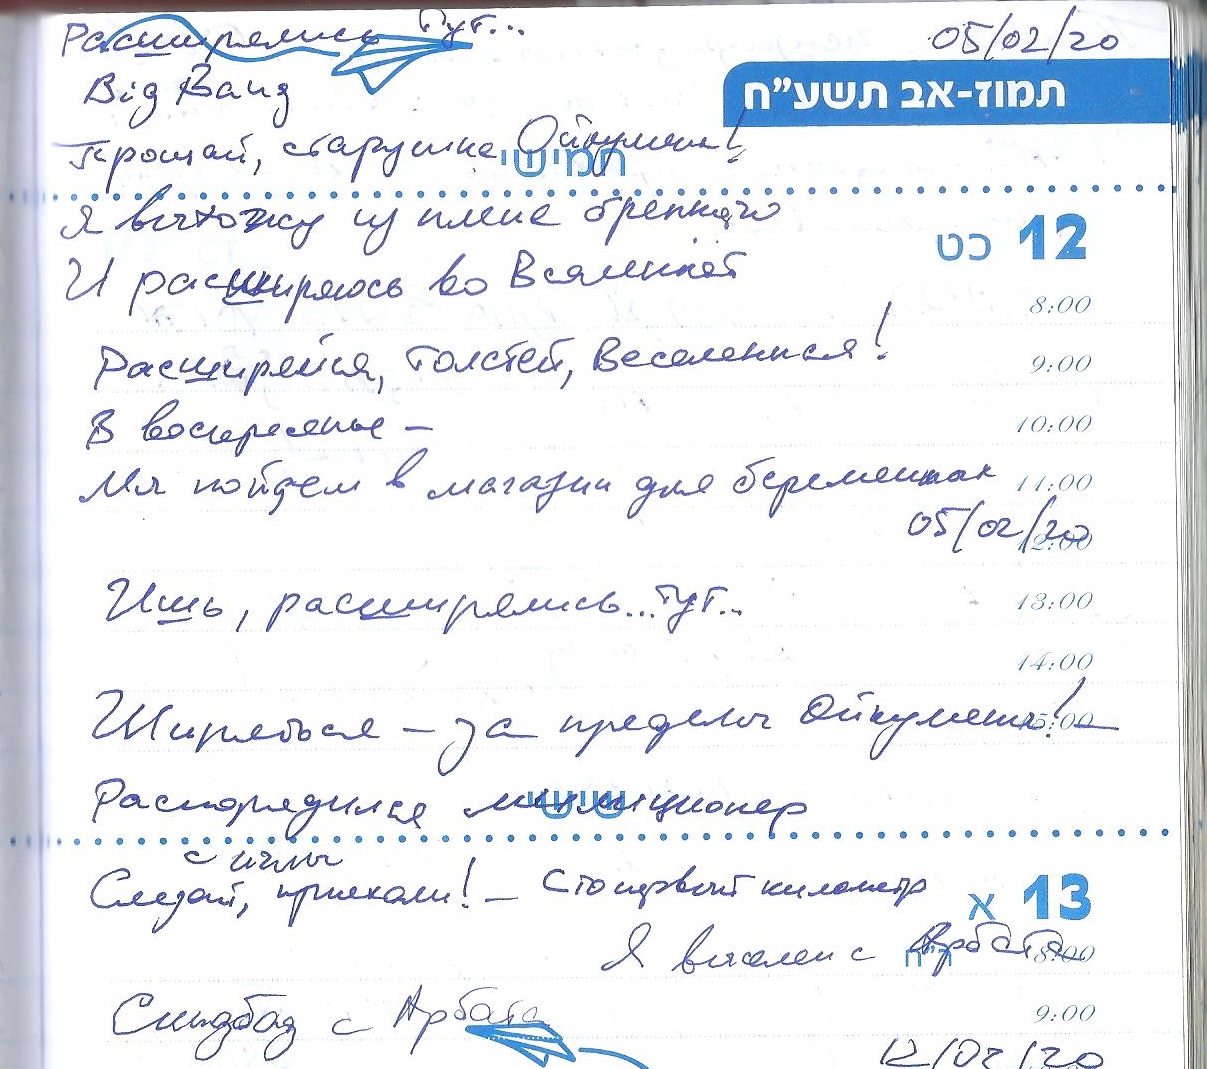 Расширялись тут...
05/02/20
Big Bang
תמוז-אב תשע"ח
Прощай, старушка Ойкумена!
חמישי
Я выхожу из плена бренного
12 כט
И расширяюсь во Вселенной
8:00
Расширяйся, толстей, Вселенная!
9:00
В воскресенье –
10:00
Мы пойдем в магазин для беременных
11:00
05/02/20
12:00
Ишь, расширялись...тут..
13:00
14:00
Ширяться – за пределы Ойкумены! –
15:00
Распорядился милиционер
שישי
с иглы
Слезай, приехали! – Сто первый километр
13 א
Я выслан с Арбата
8:00
Синдбад с Арбата
9:00
12/02/20